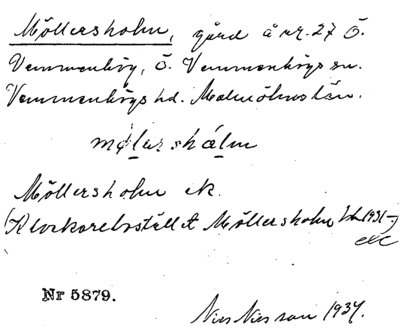 Möllersholm, gård å nr. 27 Ö.
Vemmenhög, Ö. Vemmenhögs sn.
Vemmenhögs hd. Malmöhus län.
møl̯arshálm
Möllersholm ek.
(Klockarebostället Möllersholm Jb 1931-)
ek
Nr 5879.
Nils Nilsson 1937.